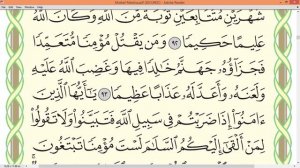 شَهْرَيْنِ مُتَتَابِعَيْنِ تَوْبَةً مِّنَ ٱللَّهِ وَكَانَ ٱللَّهُ
عَلِيمًا حَكِيمًا ٩٢ وَمَن يَقْتُلْ مُؤْمِنًا مُّتَعَمِّدًا
فَجَزَآؤُهُۥ جَهَنَّمُ خَٰلِدًا فِيهَا وَغَضِبَ ٱللَّهُ عَلَيْهِ
وَلَعَنَهُۥ وَأَعَدَّ لَهُۥ عَذَابًا عَظِيمًا ٩٣ يَٰٓأَيُّهَا ٱلَّذِينَ
ءَامَنُوٓا۟ إِذَا ضَرَبْتُمْ فِى سَبِيلِ ٱللَّهِ فَتَبَيَّنُوا۟ وَلَا تَقُولُوا۟
لِمَنْ أَلْقَىٰٓ إِلَيْكُمُ ٱلسَّلَٰمَ لَسْتَ مُؤْمِنًا تَبْتَغُونَ